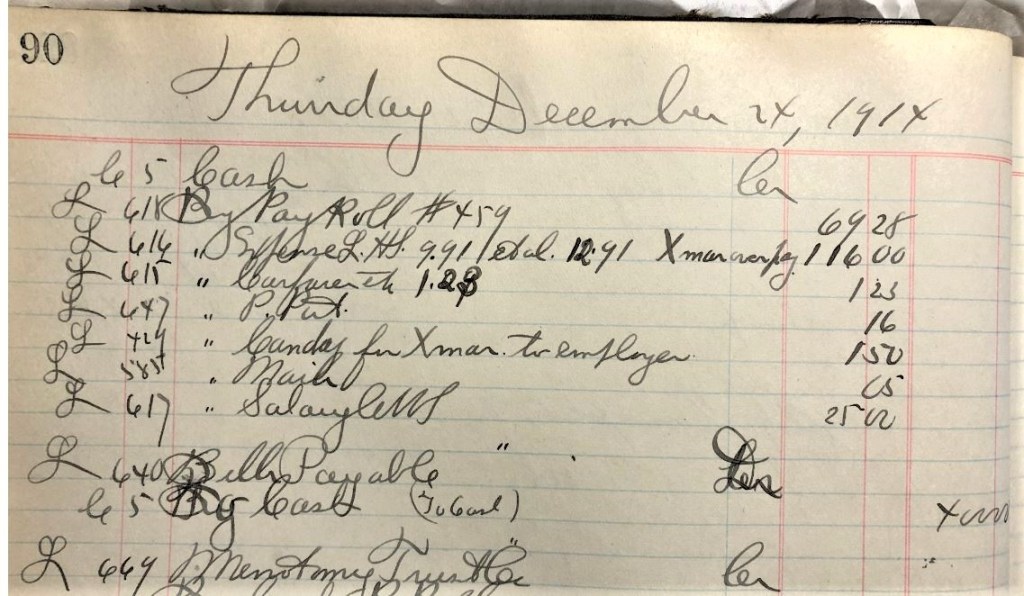 90
Thursday December 24, 1914
C 5 Cash Cr
L 618 By Pay Roll #459 69 28
L 616 " Expense L.H. 9.91 et al. 12.91 Xmas 116 00
L 615 " Carfare 1.23 1 23
L 647 " P. 16
L 424 " Candy for Xmas. to employees 1 50
L 585 " Main 05
L 617 " Salary 25 00
L 640 Bills Payable "
C 5 By Cash (To Cash)
L 669 Menotomy Trust Co " Cr